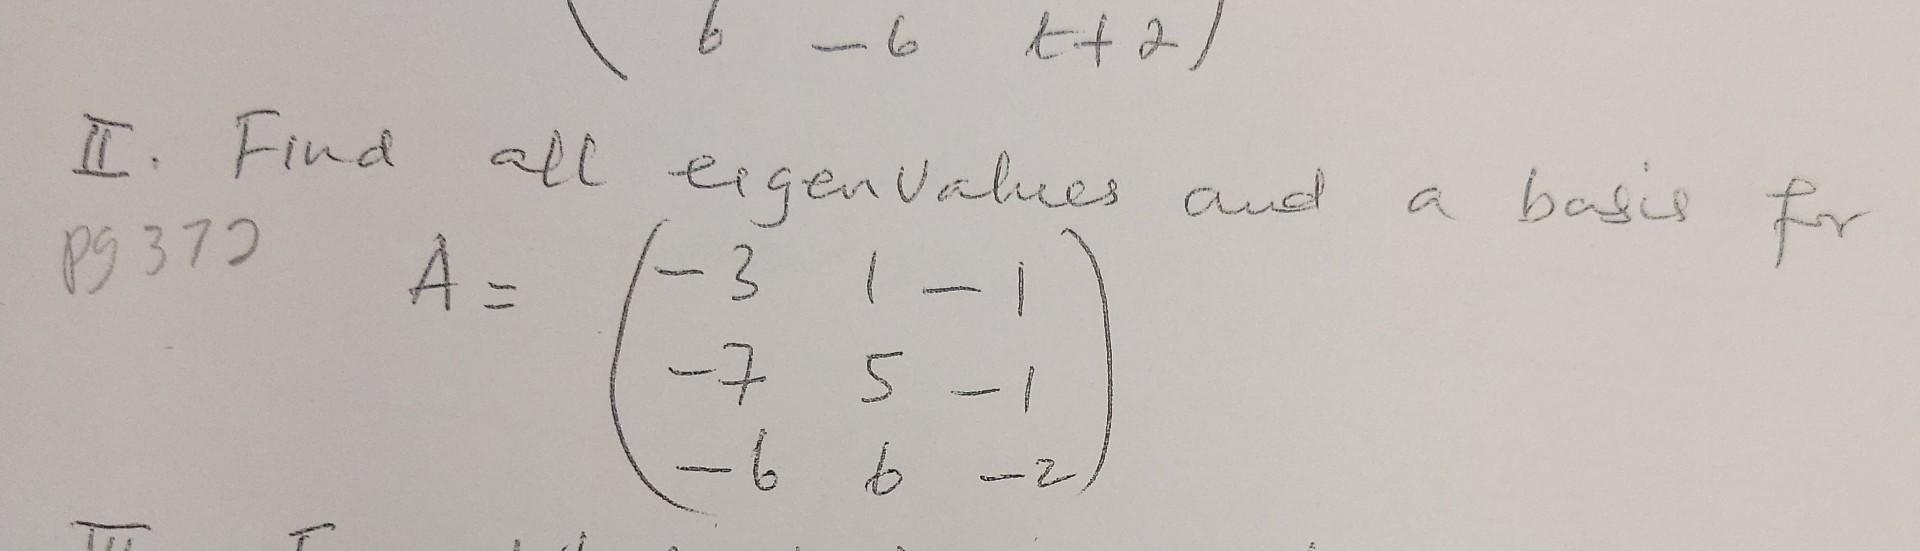 6 -6 t+2
II. Find all eigenvalues and a basis for
pg 372
A = -3 1 -1
-7 5 -1
-6 6 -2
III.